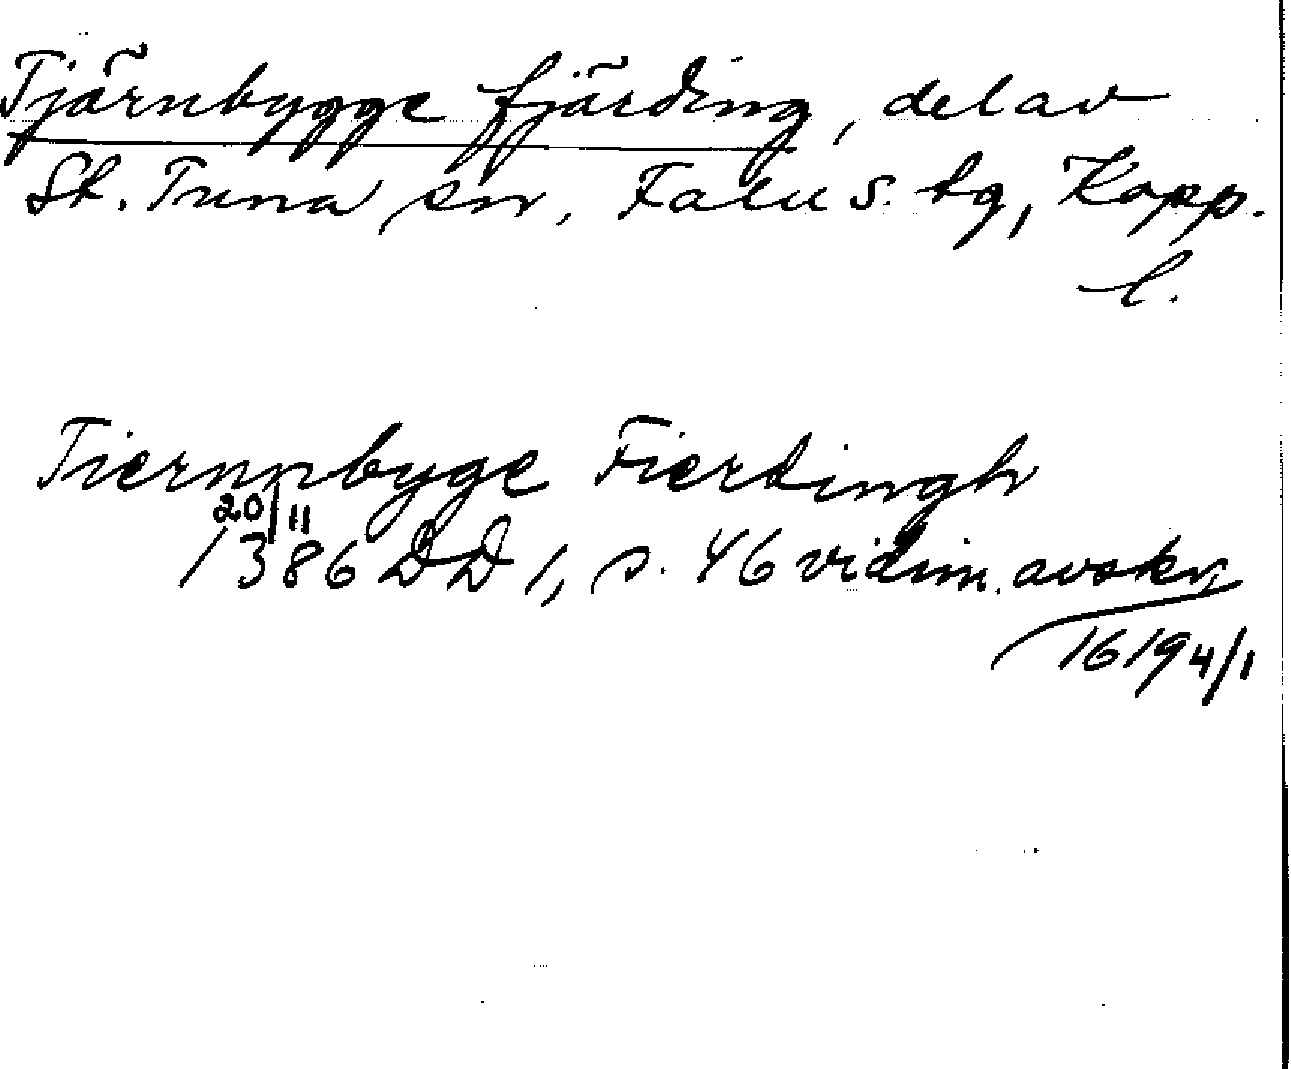 Tjärnbygge fjärding, del av
St. Tuna sn, Falu s. tg, Kopp.
l.
Tiernnbyge Fierdingh
20/11
1386 DD 1, s. 46 vidim. avskr.
1619 4/1